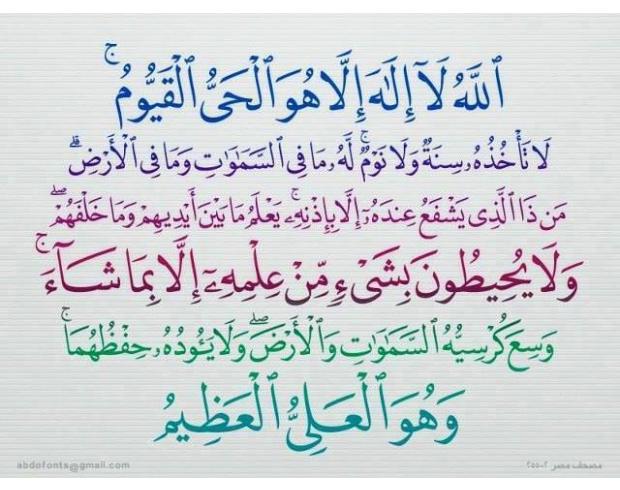 ٱللَّهُ لَآ إِلَٰهَ إِلَّا هُوَ ٱلْحَىُّ ٱلْقَيُّومُ ۚ
لَا تَأْخُذُهُۥ سِنَةٌ وَلَا نَوْمٌ ۚ لَّهُۥ مَا فِى ٱلسَّمَٰوَٰتِ وَمَا فِى ٱلْأَرْضِ ۗ
مَن ذَا ٱلَّذِى يَشْفَعُ عِندَهُۥٓ إِلَّا بِإِذْنِهِۦ ۚ يَعْلَمُ مَا بَيْنَ أَيْدِيهِمْ وَمَا خَلْفَهُمْ ۖ
وَلَا يُحِيطُونَ بِشَىْءٍ مِّنْ عِلْمِهِۦٓ إِلَّا بِمَا شَآءَ ۚ
وَسِعَ كُرْسِيُّهُ ٱلسَّمَٰوَٰتِ وَٱلْأَرْضَ ۖ وَلَا يَـُٔودُهُۥ حِفْظُهُمَا ۚ
وَهُوَ ٱلْعَلِىُّ ٱلْعَظِيمُ
مصحف مصر
abdofonts@gmail.com